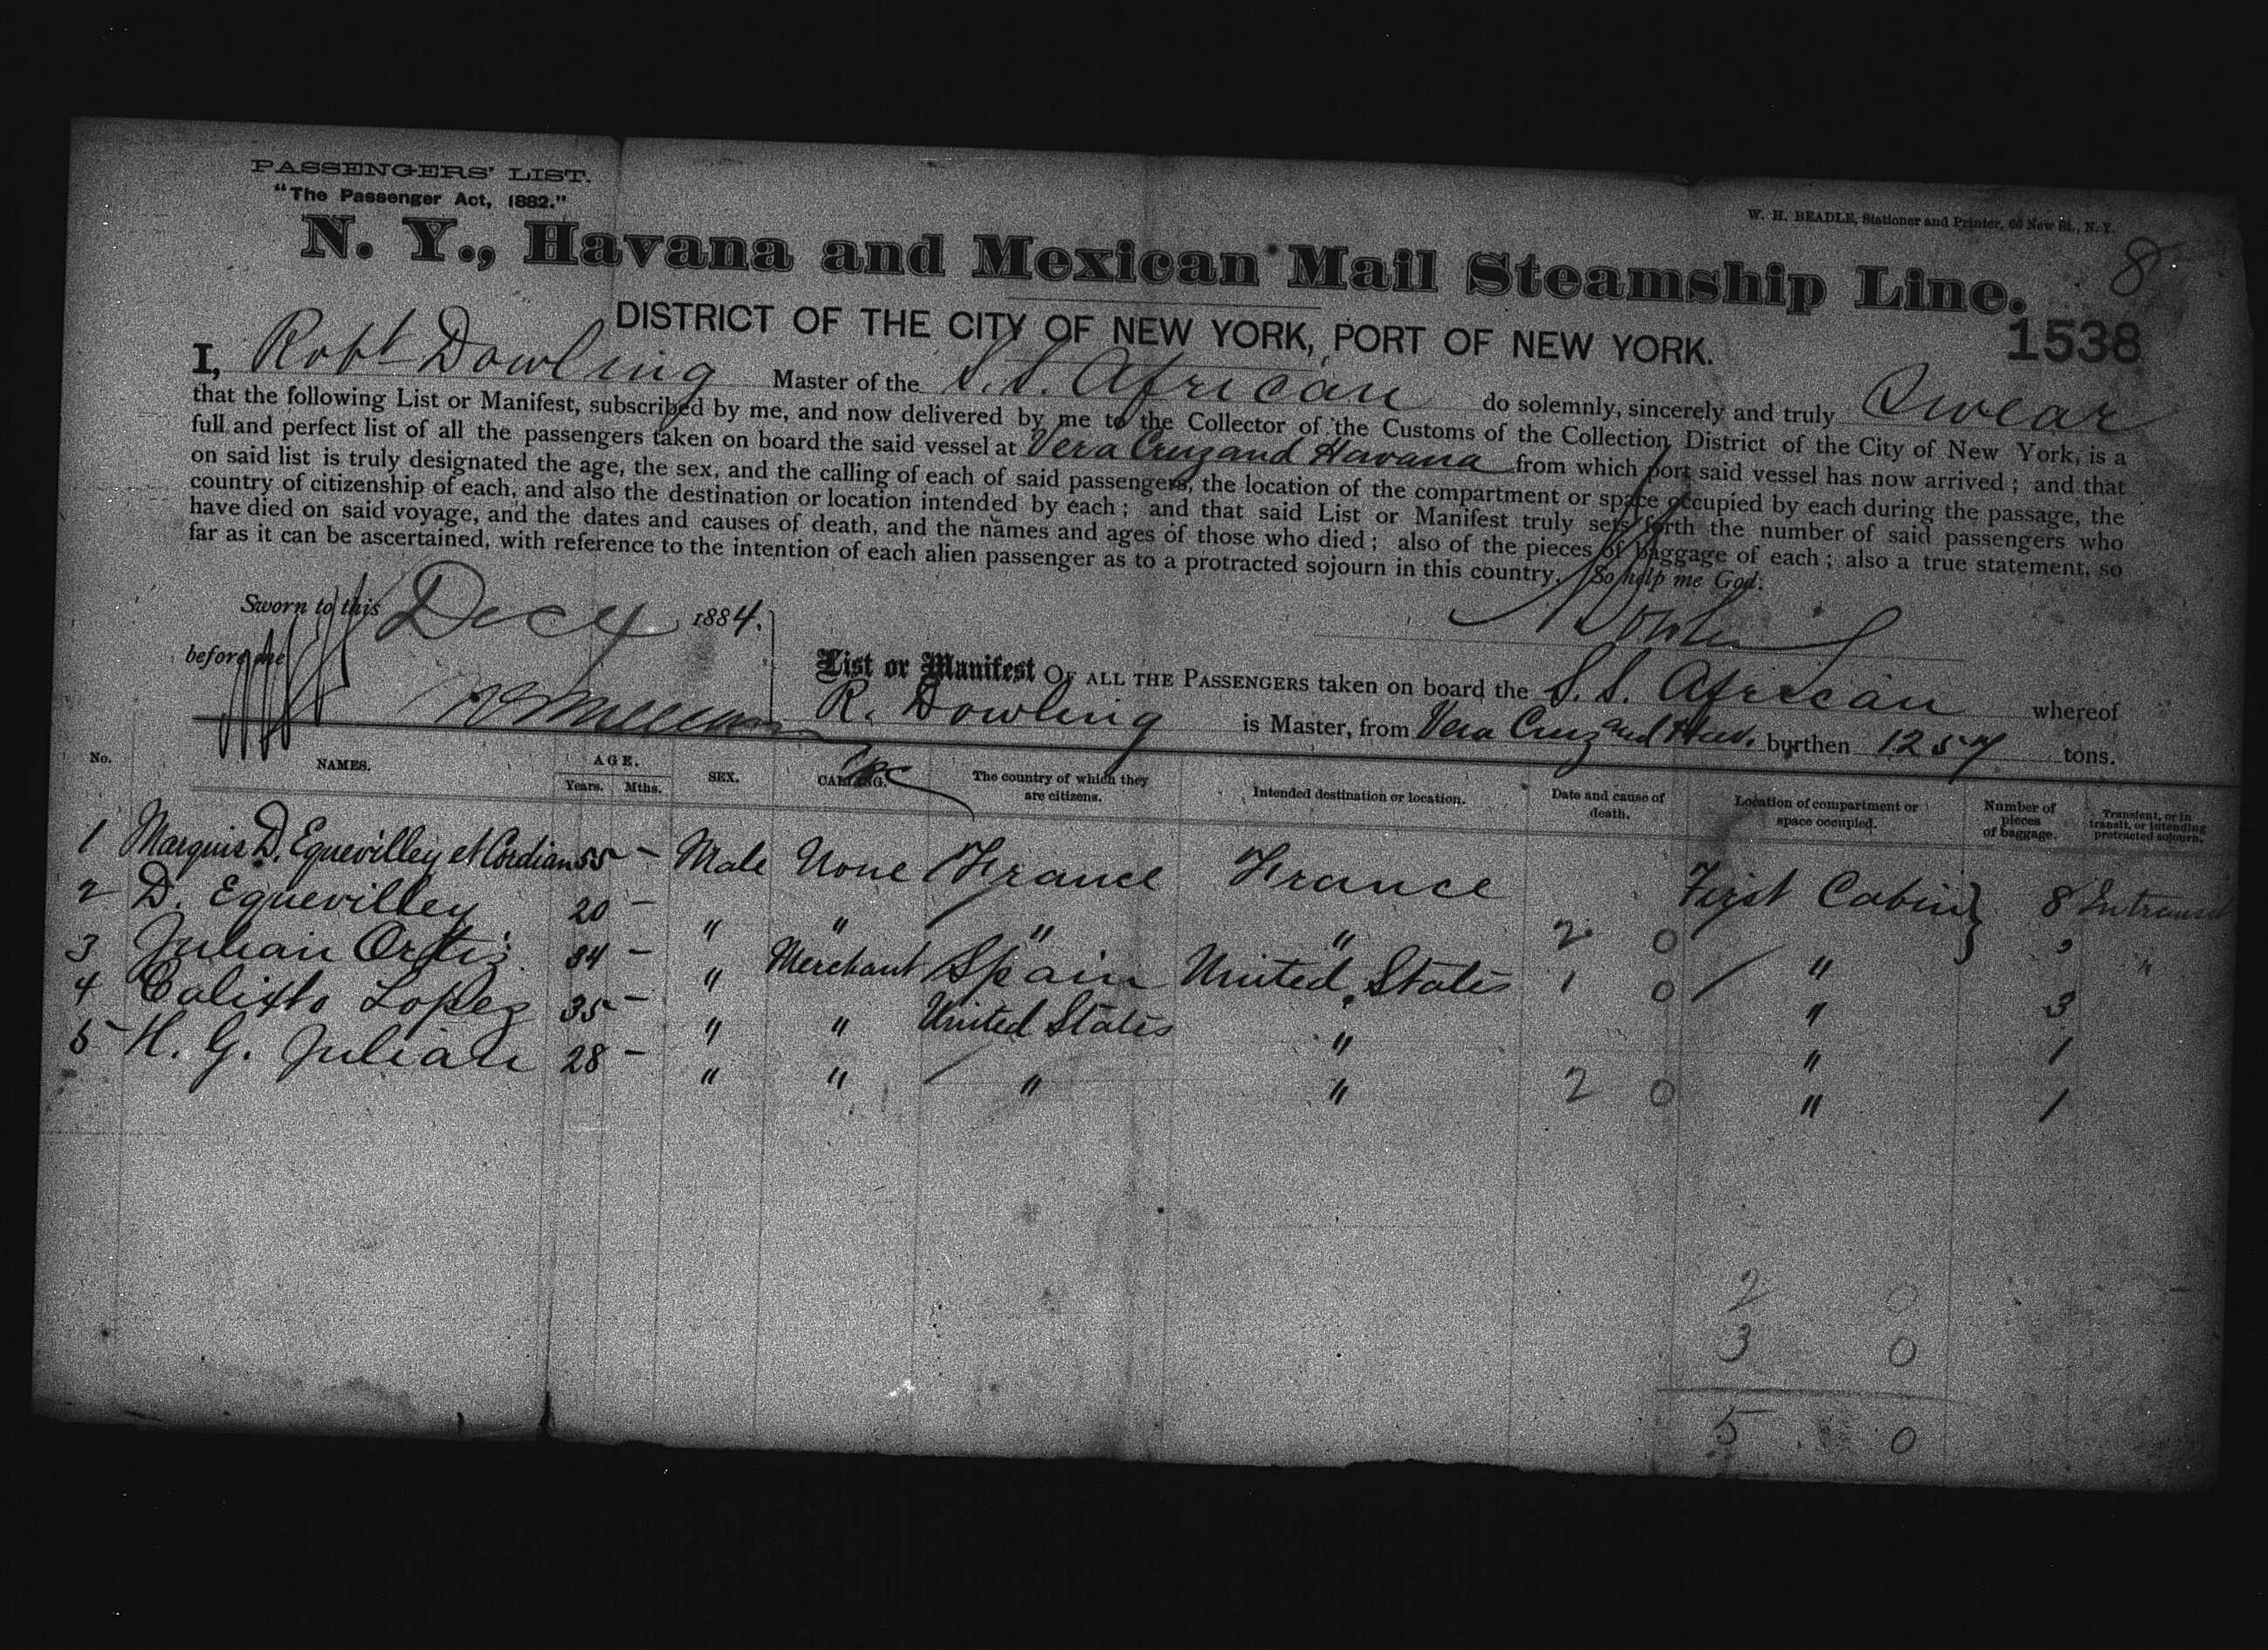 PASSENGERS' LIST.
"The Passenger Act, 1882."
W. H. BEADLE, Stationer and Printer, 66 New St., N. Y.
8
N. Y., Havana and Mexican Mail Steamship Line.
1538
DISTRICT OF THE CITY OF NEW YORK, PORT OF NEW YORK.
I, Robt Dowling Master of the S.S. African do solemnly, sincerely and truly Swear
that the following List or Manifest, subscribed by me, and now delivered by me to the Collector of the Customs of the Collection District of the City of New York, is a
full and perfect list of all the passengers taken on board the said vessel at Vera Cruz and Havana from which port said vessel has now arrived; and that
on said list is truly designated the age, the sex, and the calling of each of said passengers, the location of the compartment or space occupied by each during the passage, the
country of citizenship of each, and also the destination or location intended by each; and that said List or Manifest truly sets forth the number of said passengers who
have died on said voyage, and the dates and causes of death, and the names and ages of those who died; also of the pieces of baggage of each; also a true statement, so
far as it can be ascertained, with reference to the intention of each alien passenger as to a protracted sojourn in this country. So help me God.
Sworn to this Dec 4 1884.
before me
List or Manifest OF ALL THE PASSENGERS taken on board the S.S. African whereof
R. Dowling is Master, from Vera Cruz and Hav. burthen 1257 tons.
No. NAMES. AGE. Years. Mths. SEX. CALLING. The country of which they are citizens. Intended destination or location. Date and cause of death. Location of compartment or space occupied. Number of pieces of baggage. Transient, or in transit, or intending protracted sojourn.
1 Marquis D. Equevilley et Cordian 55 – Male None France France First Cabin } 8 In transit
2 D. Equevilley 20 – " " " " 2 0 " "
3 Julian Ortiz 34 – " Merchant Spain United States 1 0 " 3
4 Calixto Lopez 35 – " " United States " " 1
5 H. G. Julian 28 – " " " " 2 0 " 1
2 0
3 0
5 0